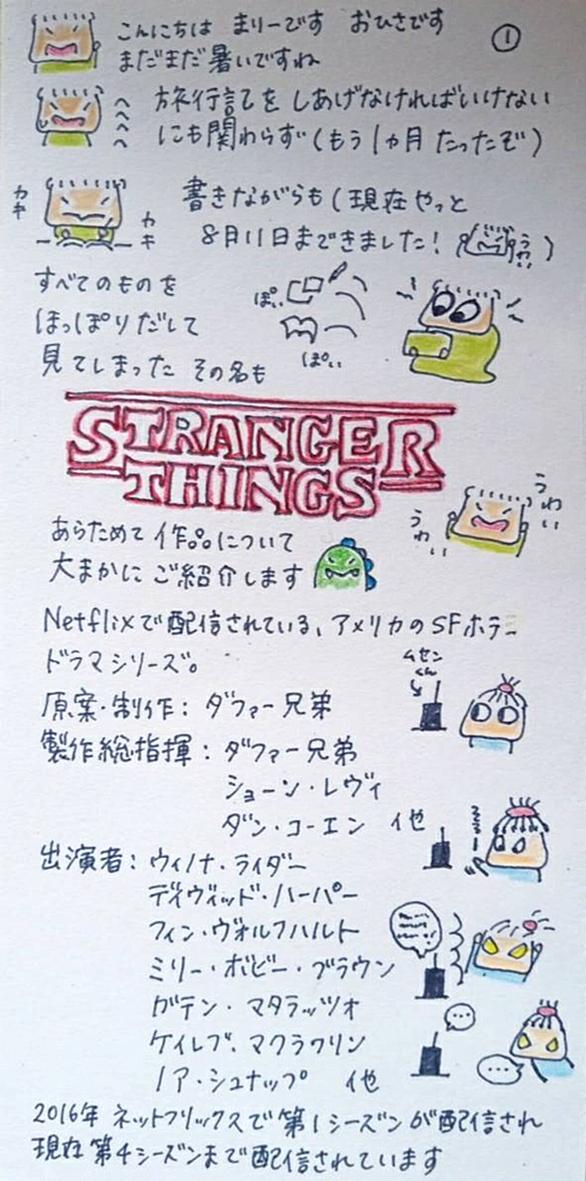 こんにちは まりーです おひさです
①
まだまだ暑いですね
旅行記を しあげなければいけない
にも関わらず(もう1ヵ月 たったぞ)
カキ
カキ
書きながらも(現在やっと
8月11日まできました! うわぃ)
すべてのものを
ほっぽりだして
見てしまった その名も
ぽぃ
ぽぃ
STRANGER
THINGS
うわぃ
うわぃ
あらためて 作品について
大まかに ご紹介します
Netflixで配信されている、アメリカのSFホラー
ドラマシリーズ。
ムセンくん
原案・制作:ダファー兄弟
製作総指揮:ダファー兄弟
ショーン・レヴィ
ダン・コーエン 他
出演者:ウィノナ・ライダー
デイヴィッド・ハーバー
フィン・ヴォルフハルト
ミリー・ボビー・ブラウン
ガテン・マタラッツォ
ケイレブ・マクラクリン
ノア・シュナップ 他
2016年 ネットフリックスで第1シーズンが配信され
現在第4シーズンまで配信されています